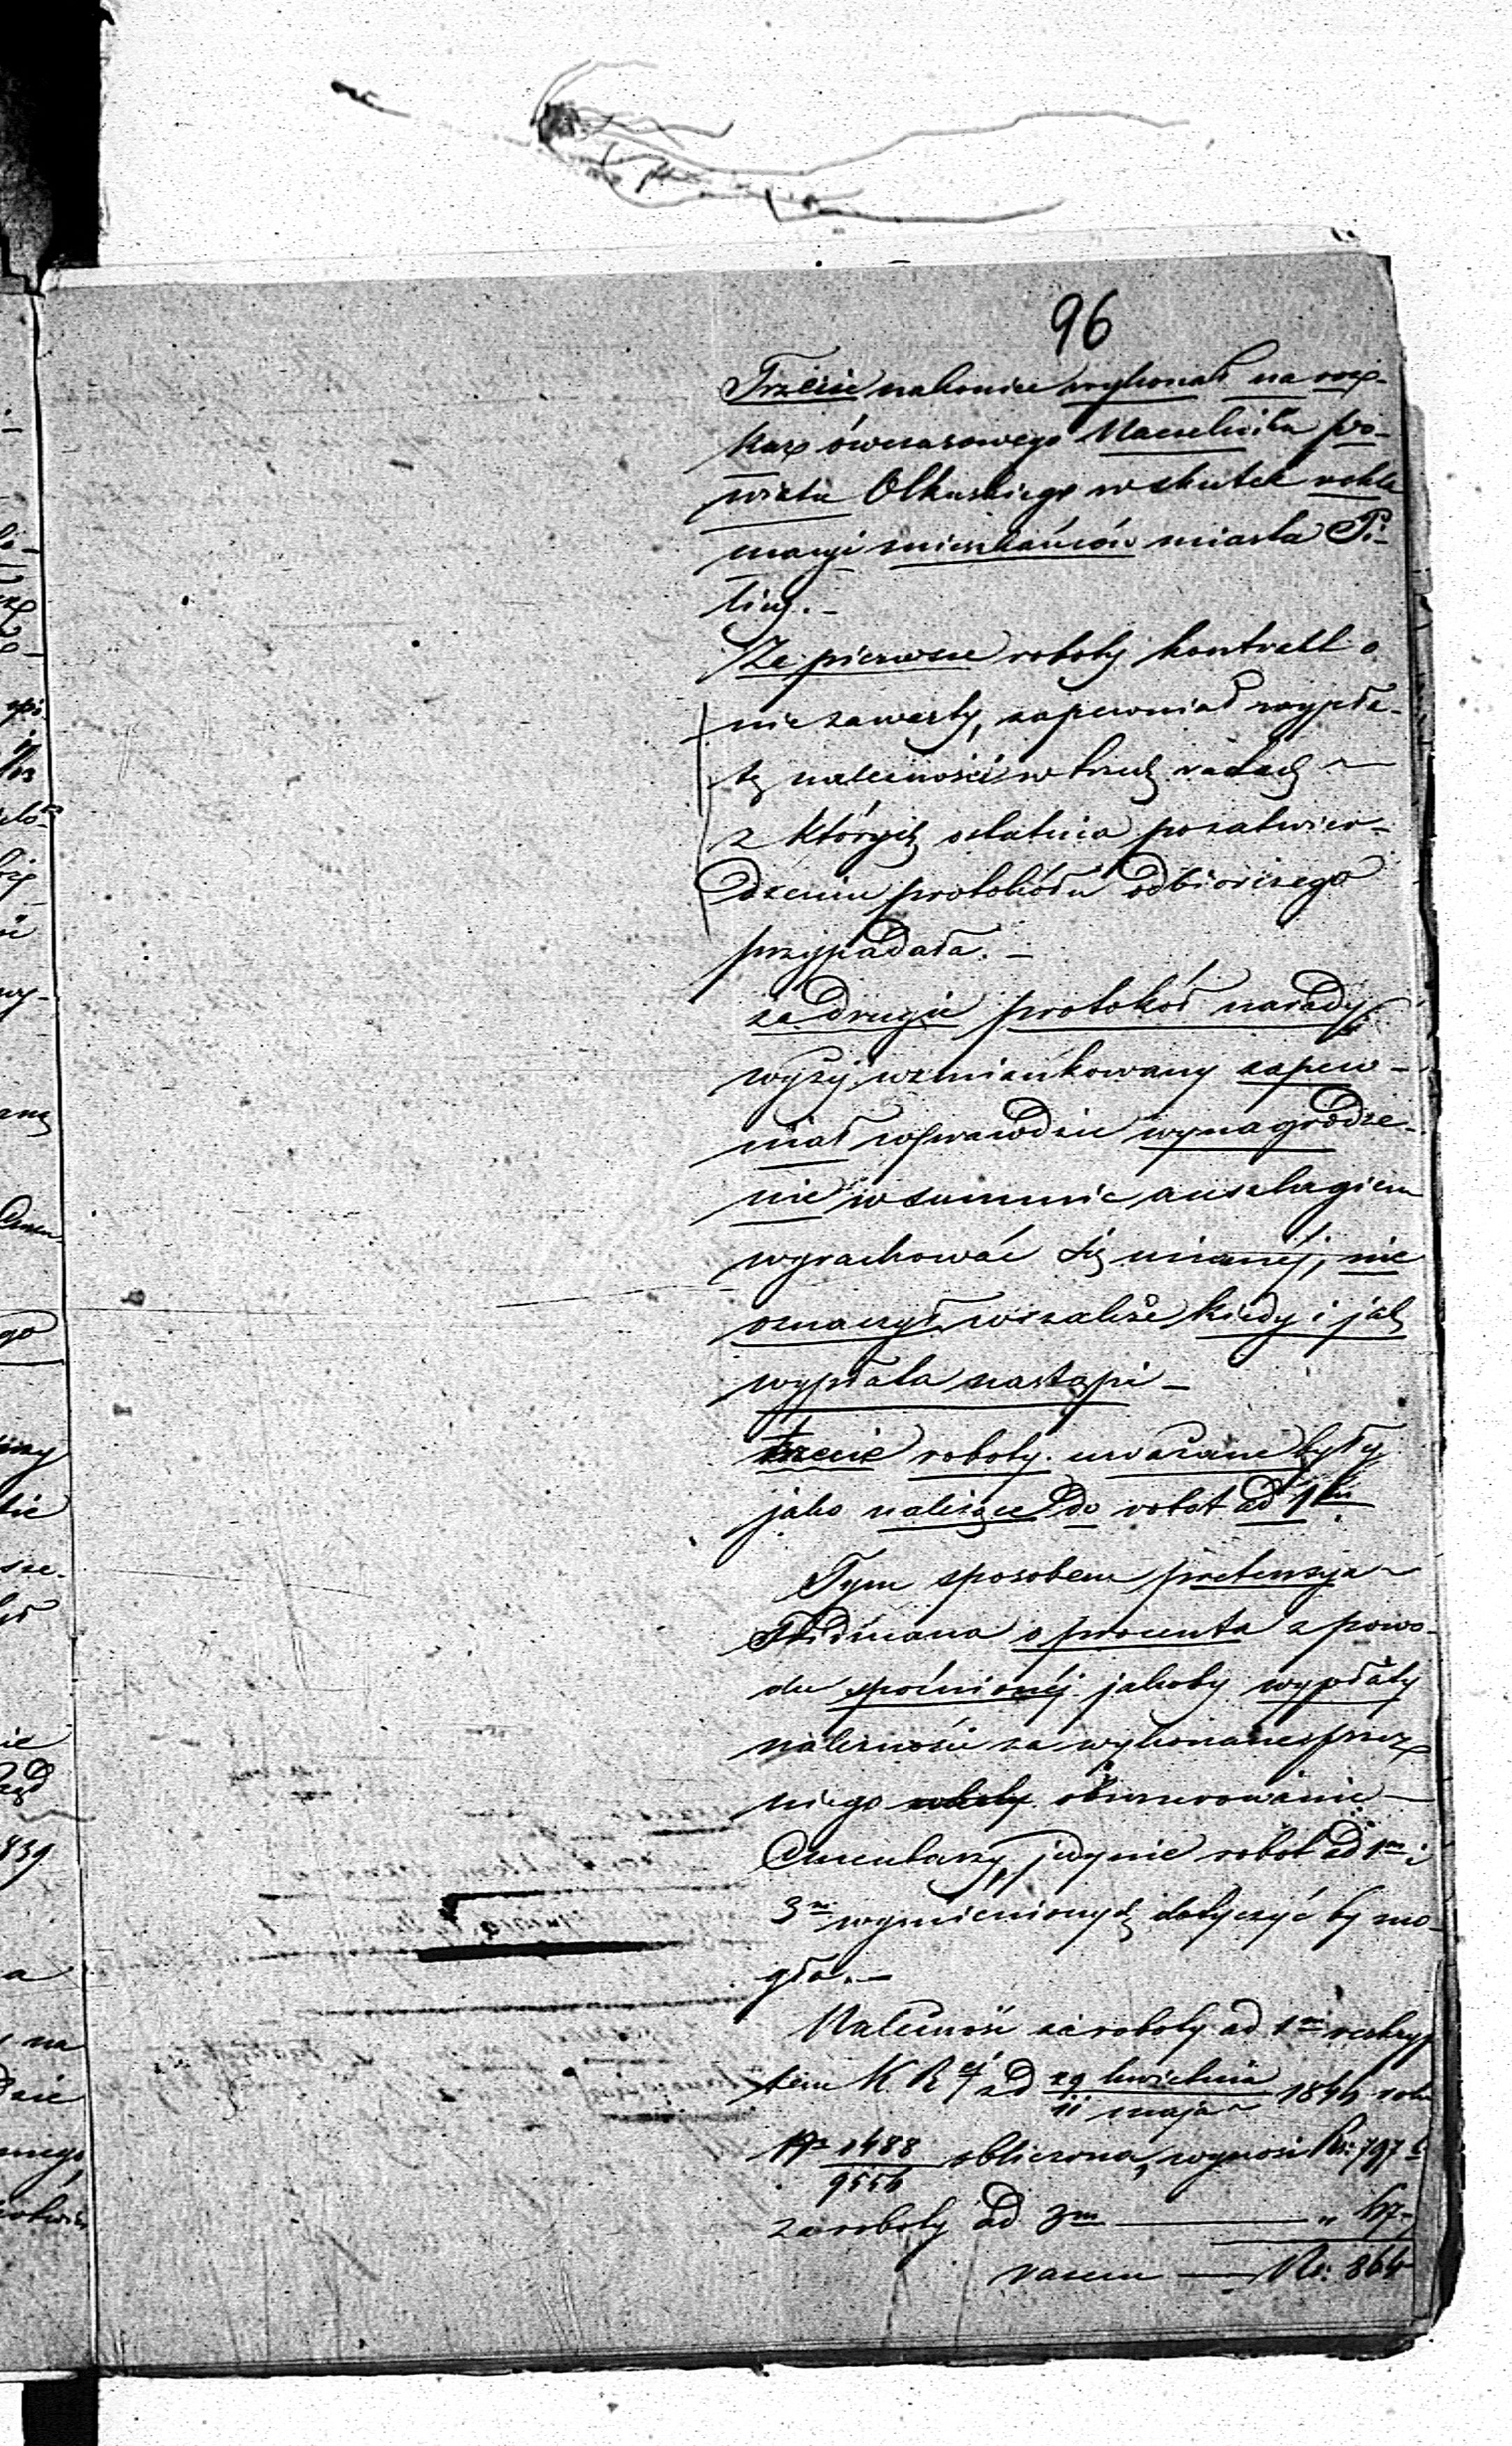 96
Trzecie nakoniec wykonał na roz-
kaz ówczasowego Naczelnika po-
wiatu Olkuskiego w skutek rekla
macyi mieszkańców miasta Pi-
licy. -
Za pierwsze roboty kontrakt o
nie zawarty, zapewniał wypła-
tę należności w trzech ratach
z których ostatnia po zatwier-
dzeniu protokółu odbiorczego
przypadała. -
za drugie protokół narady
wyżej wzmiankowany zapew-
niał wprawdzie wynagrodze-
nie w summie anszlagiem
wyrachować się mianej, nie
oznaczył wszakże kiedy i jak
wypłata nastąpi -
trzecie roboty uważane były
jako należące do robot ad 1m
Tym sposobem pretensya
Fridmana o procenta z powo-
du spóźnionéj jakoby wypłaty
należności za wykonane przez
niego obmurowanie
Cmentarzy, jedynie robot ad 1m i
3m wymienionych dotyczyć by mo-
gła. -
Należność za roboty ad 1m reskryp
tem K. R. od 29 kwietnia / 11 maja 1844 roku
No 1488 / 9554 obliczona, wynosi Rs: 797
za roboty ad 3m — " 67
razem — Rs: 864